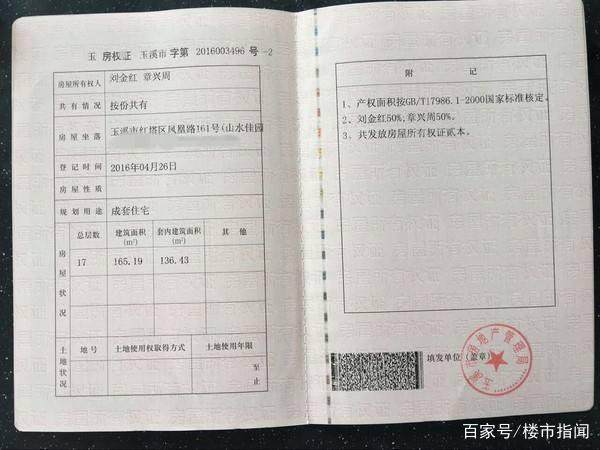 玉 房权证 玉溪市 字第 2016003496 号 -2
房屋所有权人 刘金红 章兴周
共有情况 按份共有
房屋坐落 玉溪市红塔区凤凰路161号(山水佳园
登记时间 2016年04月26日
房屋性质
规划用途 成套住宅
房屋状况
总层数 建筑面积(m²) 套内建筑面积(m²) 其他
17 165.19 136.43
土地状况
地号 土地使用权取得方式 土地使用年限
至
止
附 记
1、产权面积按GB/T17986.1-2000国家标准核定。
2、刘金红50%;章兴周50%。
3、共发放房屋所有权证贰本。
填发单位(盖章)
玉溪市房地产管理局
百家号/楼市指闻